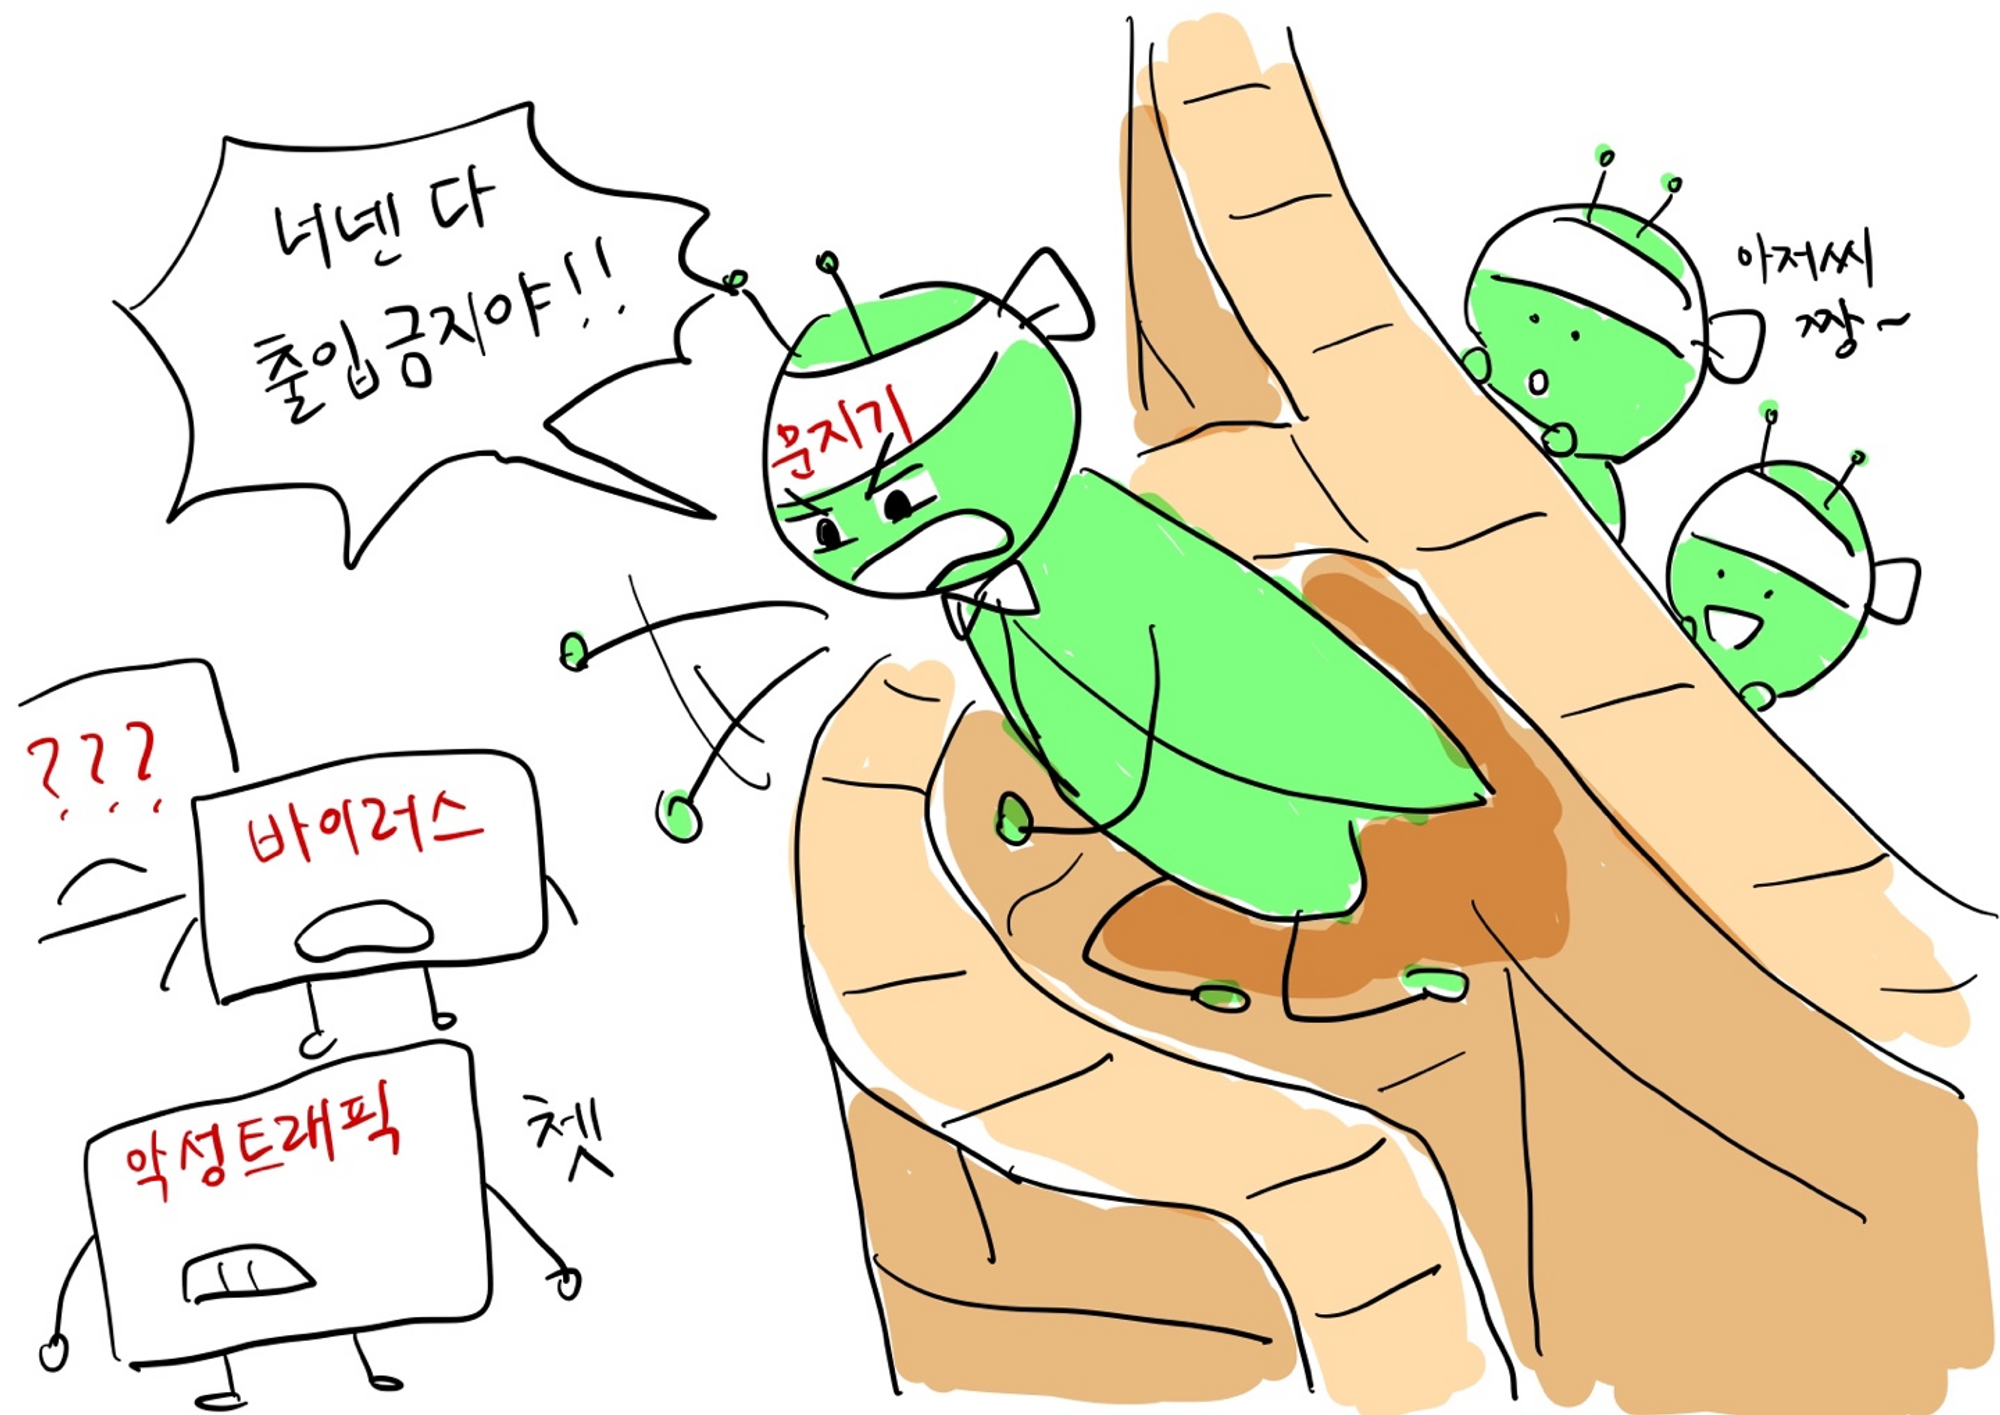 너넨 다
출입금지야!!
문지기
아저씨
짱~
???
바이러스
악성트래픽
쳇